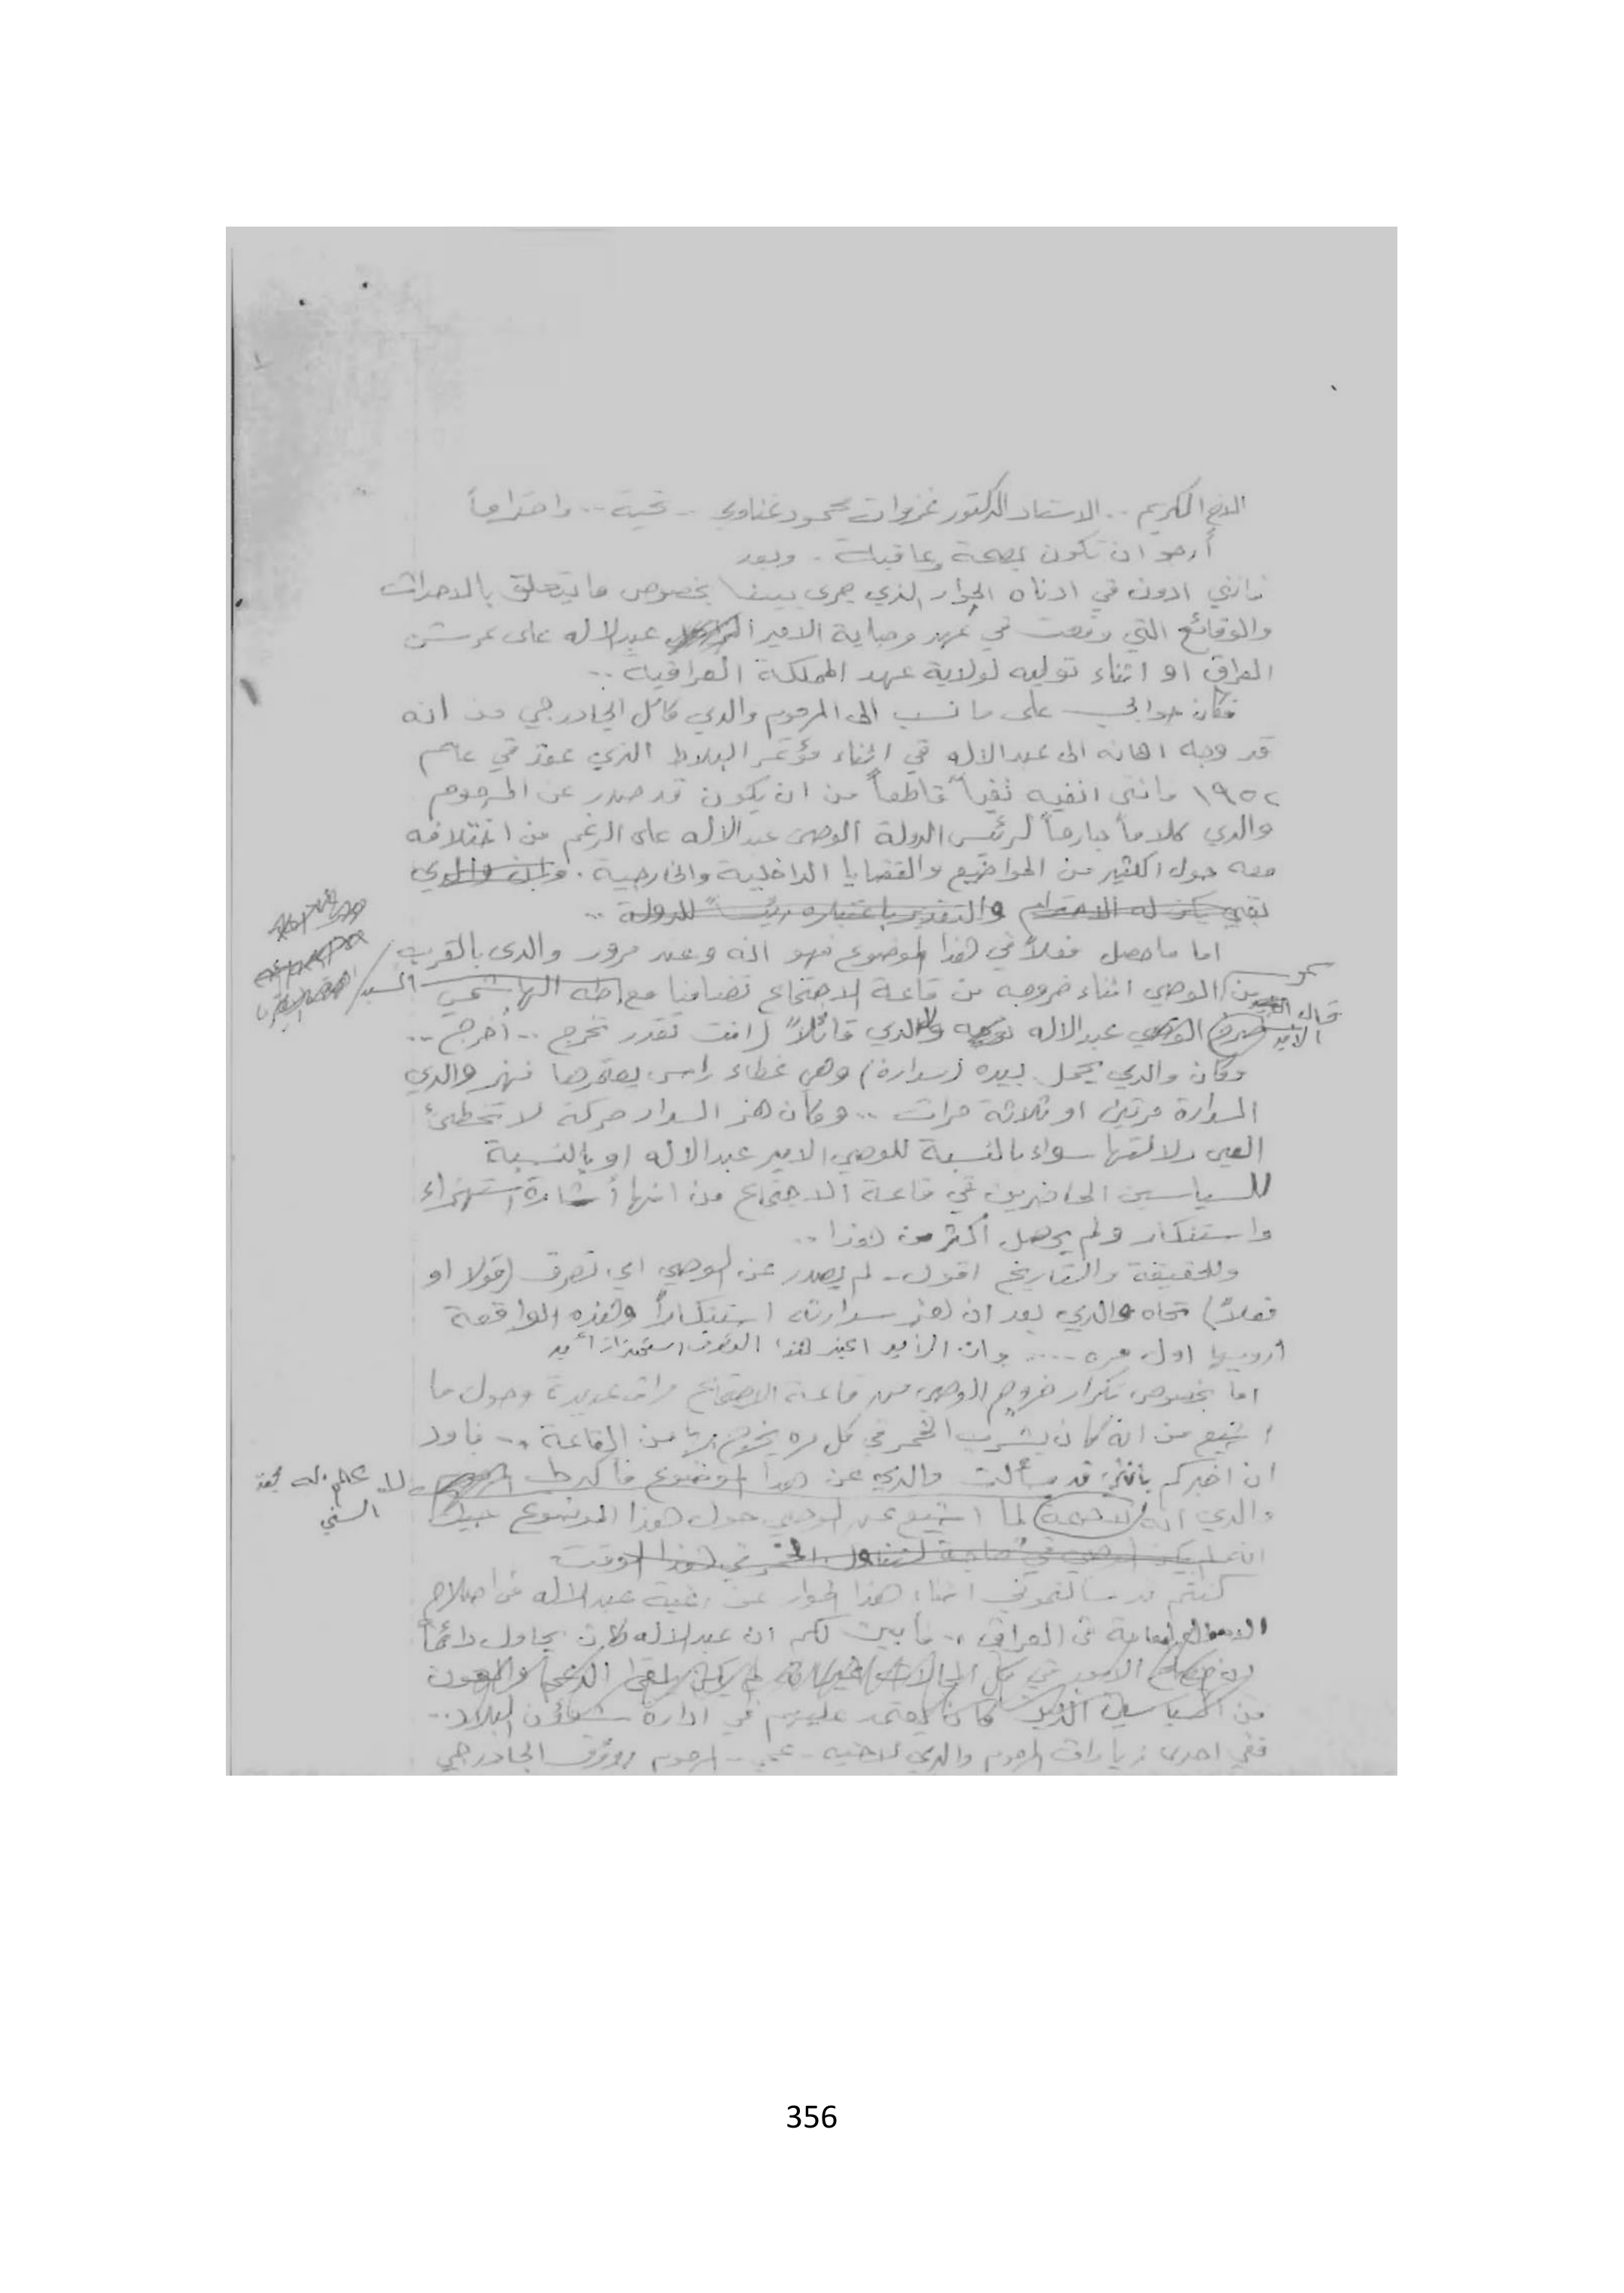 الاخ الكريم .. الاستاذ الدكتور غزوان محمود غناوي .. تحية .. واحتراماً
أرجو ان تكون بصحة وعافية .. وبعد
فانني ادون في ادناه الحوار الذي جرى بيننا بخصوص ما يتعلق بالاحداث
والوقائع التي وقعت في عهد وصاية الامير عبدالاله على عرش
العراق او اثناء توليه لولاية عهد المملكة العراقية ..
فكان جوابي على ما نسب الى المرحوم والدي كامل الجادرجي من انه
قد وجه اهانه الى عبدالاله في اثناء مؤتمر البلاط الذي عقد في عام
١٩٥٢ فانني انفيه نفياً قاطعاً من ان يكون قد صدر عن المرحوم
والدي كلاماً جارحاً لرئيس الدولة الوصي عبدالاله على الرغم من اختلافه
معه حول الكثير من المواضيع والقضايا الداخلية والخارجية . وبان والدي
بقي يكن له الاحترام والتقدير باعتباره رئيساً للدولة ..
اما ما حصل فعلاً في هذا الموضوع فهو انه وعند مرور والدي بالقرب
من الوصي اثناء خروجه من قاعة الاجتماع تضامنا مع السيد طه الهاشمي
قال
الامير
الوصي عبدالاله لوالدي قائلاً (انت تقدر تخرج .. أخرج ..
وكان والدي يحمل بيده (سدارة) وهي غطاء راس يعتمرها فهز والدي
السدارة مرتين او ثلاثة مرات .. وكان هز السدار حركة لا تخطئ
العين دلالتها سواء بالنسبة للوصي الامير عبدالاله او بالنسبة
للسياسين الحاضرين في قاعة الاجتماع من انها أشارة استهزاء
واستنكار ولم يحصل أكثر من هذا ..
وللحقيقة والتاريخ اقول .. لم يصدر عن الوصي اي تصرف (قولا او
فعلاً) تجاه والدي بعد ان هز سدارته استنكاراً وهذه الواقعة
أرويها اول مره .... وان الأمير اعتبر هذا
اما بخصوص تكرار خروج الوصي من قاعة الاجتماع مرات عديدة وحول ما
اشيع من انه كان يشرب الخمر في كل مره يخرج بها من القاعة .. فاود
ان اخبركم بانني قد سألت والدي عن هذا الموضوع فأكد لي
والدي انه لا صحة لما اشيع عن الوصي حول هذا الموضوع
لا علم له بهذا
الشي
انه لم يكن الوصي في حاجة لتناول الخمر في هذا الوقت
كنتم قد سألتموني اثناء هذا الحوار عن رغبة عبدالاله في اصلاح
الاحوال العامة في العراق .. فأبين لكم ان عبدالاله كان يحاول دائماً
الامور في كل المجالات لم يكن يلقى الدعم والعون
من السياسيين الذين كان يعتمد عليهم في ادارة شؤون البلاد ..
ففي احدى زيارات المرحوم والدي لاخيه - عمي - المرحوم رؤوف الجادرجي
356